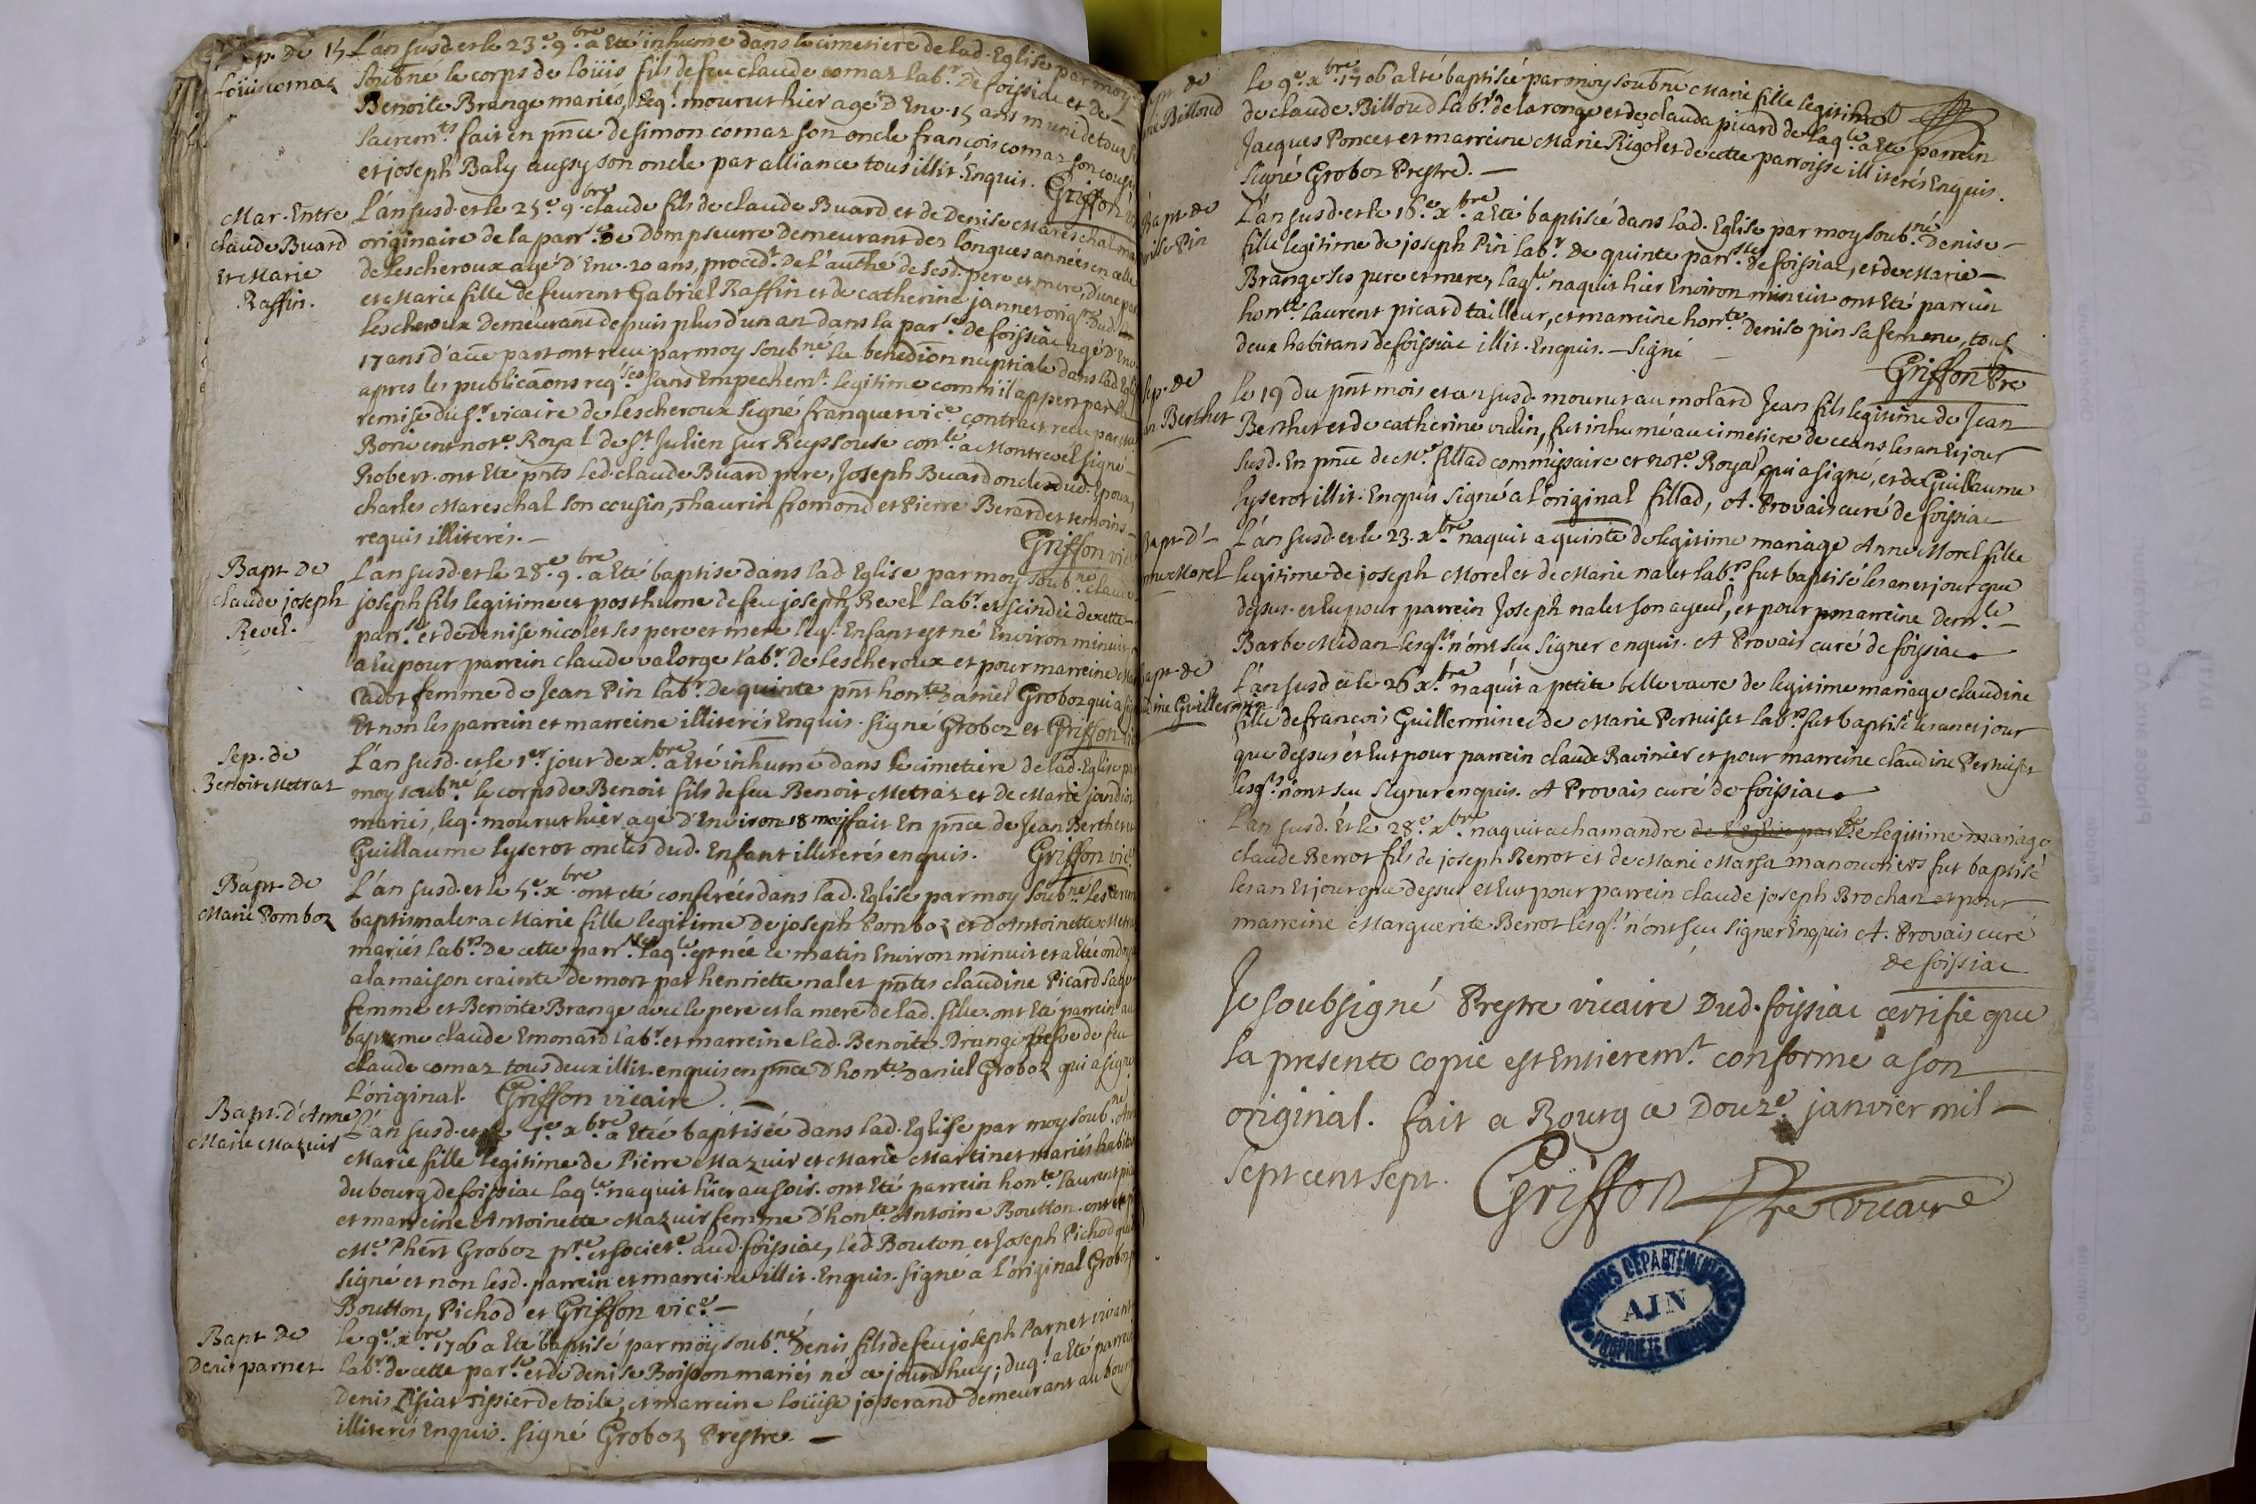 Sep. De
Loüis comaz
L'an susd. et le 23.e 9.bre a Eté inhumé dans le cimetiere de lad. Eglise par moy
soubné le corps de Loüis fils de feu claude comaz lab.r De foissiac et de
Benoite Brange mariés, leq.l mourut hier agé D'Env. 15 ans muni de tous
Sacrem.ts fait en pñce de simon comaz son oncle françois comaz son cousin
et joseph Baly aussy son oncle par alliance tous illit. Enquis. Griffon
Mar. Entre
claude Buard
Et Marie
Raffin.
L'an susd. et le 25.e 9.bre claude fils de claude Buard et de Denise Mareschal
originaire de la parr.e De Dompseurre demeurant des longues années en celle
de Lescheroux agé D'Env. 20 ans, proced.t De l'authé de sesd. pere et mere, d'une part
et Marie fille de feu rent Gabriel Raffin et de catherine jannet orig.re Dud.
Lescheroux Demeurant depuis plus d'un an dans la par.se De foissiac agé D'Env.
17 ans d'aûe part ont receu par moy soub.né La benediôn nuptiale dans lad. Eglise
apres les publicaôns req.ses sans Empechem.t Legitime comm'il appert par la
remise du s.r vicaire de Lescheroux signé franquet vic.e contract receu par
Borivent not.e Royal de S.t Julien sur Reyssouse con.le a Montrevel signé
Robert. ont Eté pñts led. claude Buard pere, Joseph Buard oncle dud. Epoux,
charles Mareschal son cousin, Thaurin fromond et Pierre Berardet temoins
requis illiterés. — Griffon vic.
Bapt. De
claude joseph
Revel.
L'an susd. et le 28.e 9.bre a Eté baptisé dans lad Eglise par moy soub.né claude
joseph fils legitime et posthume de feu joseph Revel Lab.r et scindic de cette
parr.se et de denise nicolet ses pere et mere leq.l Enfant est né Environ minuit
a Eu pour parrein claude valorge Lab.r De Lescheroux et pour marreine
cadot femme de Jean Pin Lab.r De quinte pñt hon.te Daniel Groboz qui a signé
Et non les parrein et marreine illiterés Enquis. signé Groboz et Griffon
Sep. de
Benoit Metraz
L'an susd. et le 1.er jour de x.bre a Eté inhumé dans le cimetiere de lad. Eglise par
moy soub.né le corps de Benoit fils de feu Benoit Metraz et De Marie jandiot
mariés, leq.l mourut hier agé D'Environ 18 mois fait En pñce de Jean Berthet et
Guillaume Lyserot oncles dud. Enfant illiterés enquis. Griffon vic.e
Bapt. De
Marie Pomboz
L'an susd. et le 5.e x.bre ont eté conferées dans lad. Eglise par moy soub.né Les cerem
baptismales a Marie fille legitime De joseph Pomboz et d'Antoinette
mariés Lab.rs De cette parr. Laq.le est née ce matin Environ minuit et a Eté ondoyé
a la maison crainte de mort par henriette nalet pñtes claudine Picard
femme et Benoite Brange avec le pere et la mere de lad. fille. ont Eté parrein au
baptesme claude Emonard Lab.r et marreine lad. Benoite Brange vefve de feu
claude comaz tous deux illit. enquis en pñce D'hon.te Daniel Groboz qui a signé
L'original. Griffon vicaire. —
Bapt. d'Anne
Marie Mazuir
L'an susd. et le 7.e x.bre a Eté baptisée dans lad. Eglise par moy soub.né Anne
Marie fille Legitime de Pierre Mazuir et Marie Martinet mariés habitans
du bourg de foissiac Laq.le naquit hier au soir. ont Eté parrein hon.te Laurent
et marreine Antoinette Mazuir femme D'hon.te Antoine Boutton. ont eté
M.e Phert Groboz p.re et societ.e aud. foissiac, led. Bouton et Joseph Pichod qui
signé et non lesd. parrein et marreine illit. Enquis. signé a L'original Groboz
Boutton, Pichod et Griffon vic.e —
Bapt De
Denis parnet
le 9.e x.bre 1706 a Eté baptisé par moy soub.né Denis fils de feu joseph Parnet vivant
lab.r de cette par.se et de denise Boisson mariés né ce jourd'huy; duq.l a Eté parrein
Denis Pisiat tissier de toile, et marreine Loüise josserand demeurant au bourg
illiterés Enquis. signé Groboz Prestre. —
Bapt. de
Billoud
le 9.e x.bre 1706 a Eté baptisée par moy soubné Marie fille legitime
de claude Billoud Lab.r de la ronge et de clauda picard de Laq.le a Eté parrein
Jacques Poncet et marreine Marie Rigolet de cette parroisse illiterés Enquis.
signé Groboz Prestre. —
Bapt. de
Denise Pin
L'an susd. et le 16.e x.bre a Eté baptisée dans lad. Eglise par moy soub.né Denise
fille legitime de joseph Pin Lab.r De quinte parr.se de foissiac, et de Marie
Brange ses pere et mere, laq.le naquit hier Environ minuit ont Eté parrein
hon.te Laurent picard tailleur, et marreine hon.te Denise pin sa femme, tous
deux habitans de foissiac illit. Enquis. — signé
Griffon Pre
Sep. de
Berthet
Le 19 du pñt mois et an susd. mourut au molard Jean fils legitime de Jean
Berthet et de catherine vulin, fut inhumé au cimetiere de ceans les an Et jour
susd. En pñce de M.e fillad commissaire et not.e Royal qui a signé, et de Guillaume
Lyserot illit. Enquis signé a l'original fillad, A. Provais curé de foissiac
Bapt. d'
Anne Morel
L'an susd. et le 23. x.bre naquit a quinte de legitime mariage Anne Morel fille
legitime de joseph Morel et de Marie nalet lab.rs fut baptisé les an et jour que
dessus. et Eu pour parrein Joseph nalet son ayeul, et pour marreine Dem.le
Barbe Midan lesq.ls n'ont seu signer enquis. A Provais curé de foissiac
Bapt. de
Claudine Guillermin
L'an susd et le 26 x.bre naquit a petite belle vavre de legitime mariage claudine
fille de françois Guillermin et de Marie Pertuiset lab.rs fut baptisé les an et jour
que dessus et Eut pour parrein claude Ravinier et pour marreine claudine Pertuiset
lesq.ls n'ont seu signer enquis. A Provais curé de foissiac
L'an susd. Et le 28.e x.bre naquit a chamandre de legitime mariage
claude Berrot fils de joseph Berrot et de Marie Marsa manouvriers fut baptisé
les an Et jour que dessus et Eut pour parrein claude joseph Brochan et pour
marreine Marguerite Berrot lesq.ls n'ont seu signer Enquis A. Provais curé
de foissiac
Je soubsigné Prestre vicaire Dud. foissiac certifie que
la presente copie est Entierem.t conforme a son
original. fait a Bourg ce Douz.e janvier mil
sept cent sept. Griffon Pre vicaire
ARCHIVES DÉPARTEMENTALES
AIN
PROPRIÉTÉ PUBLIQUE